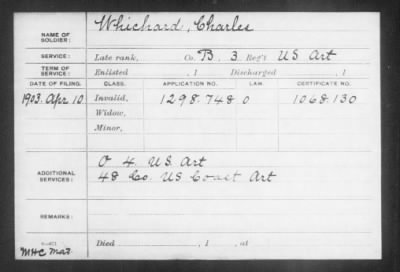 NAME OF SOLDIER: Whichard, Charles
SERVICE: Late rank, Co. B, 3 Reg't US Art
TERM OF SERVICE: Enlisted , 1 Discharged , 1
DATE OF FILING. CLASS. APPLICATION NO. LAW. CERTIFICATE NO.
1903. Apr. 10. Invalid, 1298.748 0 1068.130
Widow,
Minor,
ADDITIONAL SERVICES: O 4. US. Art
48 Co. US Coast Art
REMARKS:
Died , 1 , at
MHC Mat.